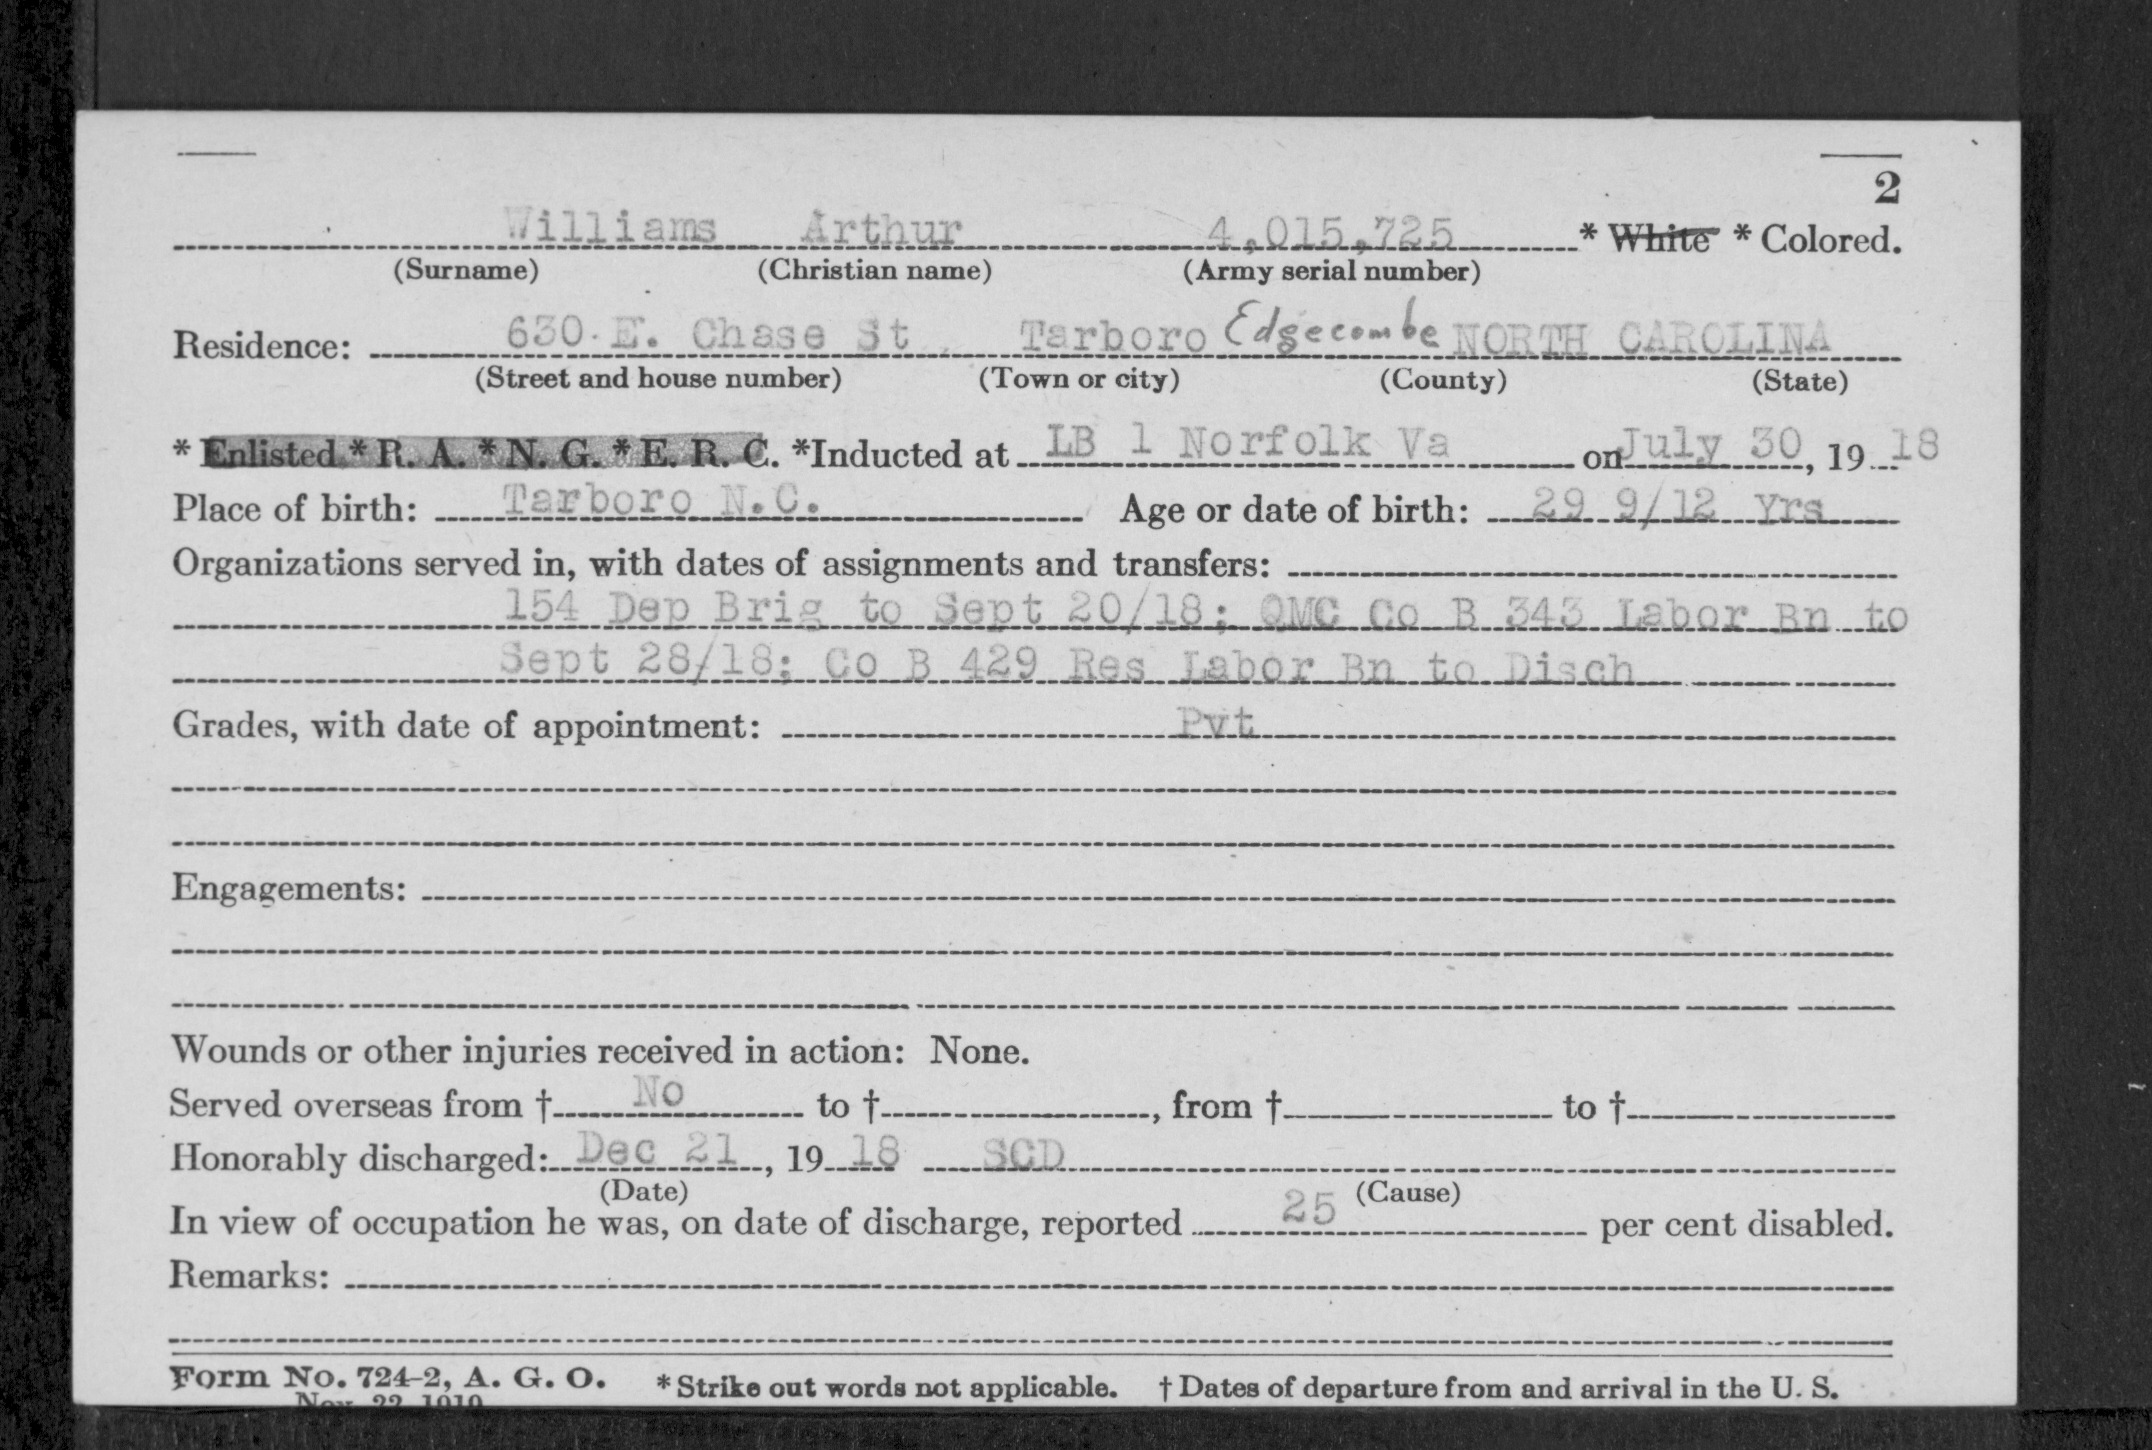 2
Williams Arthur 4,015,725 * White * Colored.
(Surname) (Christian name) (Army serial number)
Residence: 630 E. Chase St Tarboro Edgecombe NORTH CAROLINA
(Street and house number) (Town or city) (County) (State)
* Enlisted * R. A. * N. G. * E. R. C. *Inducted at LB 1 Norfolk Va on July 30, 19 18
Place of birth: Tarboro N.C. Age or date of birth: 29 9/12 Yrs
Organizations served in, with dates of assignments and transfers:
154 Dep Brig to Sept 20/18; QMC Co B 343 Labor Bn to
Sept 28/18; Co B 429 Res Labor Bn to Disch
Grades, with date of appointment: Pvt
Engagements:
Wounds or other injuries received in action: None.
Served overseas from † No to †, from † to †
Honorably discharged: Dec 21, 19 18 SCD
(Date) (Cause)
In view of occupation he was, on date of discharge, reported 25 per cent disabled.
Remarks:
Form No. 724-2, A. G. O. * Strike out words not applicable. † Dates of departure from and arrival in the U. S.
Nov. 22, 1919